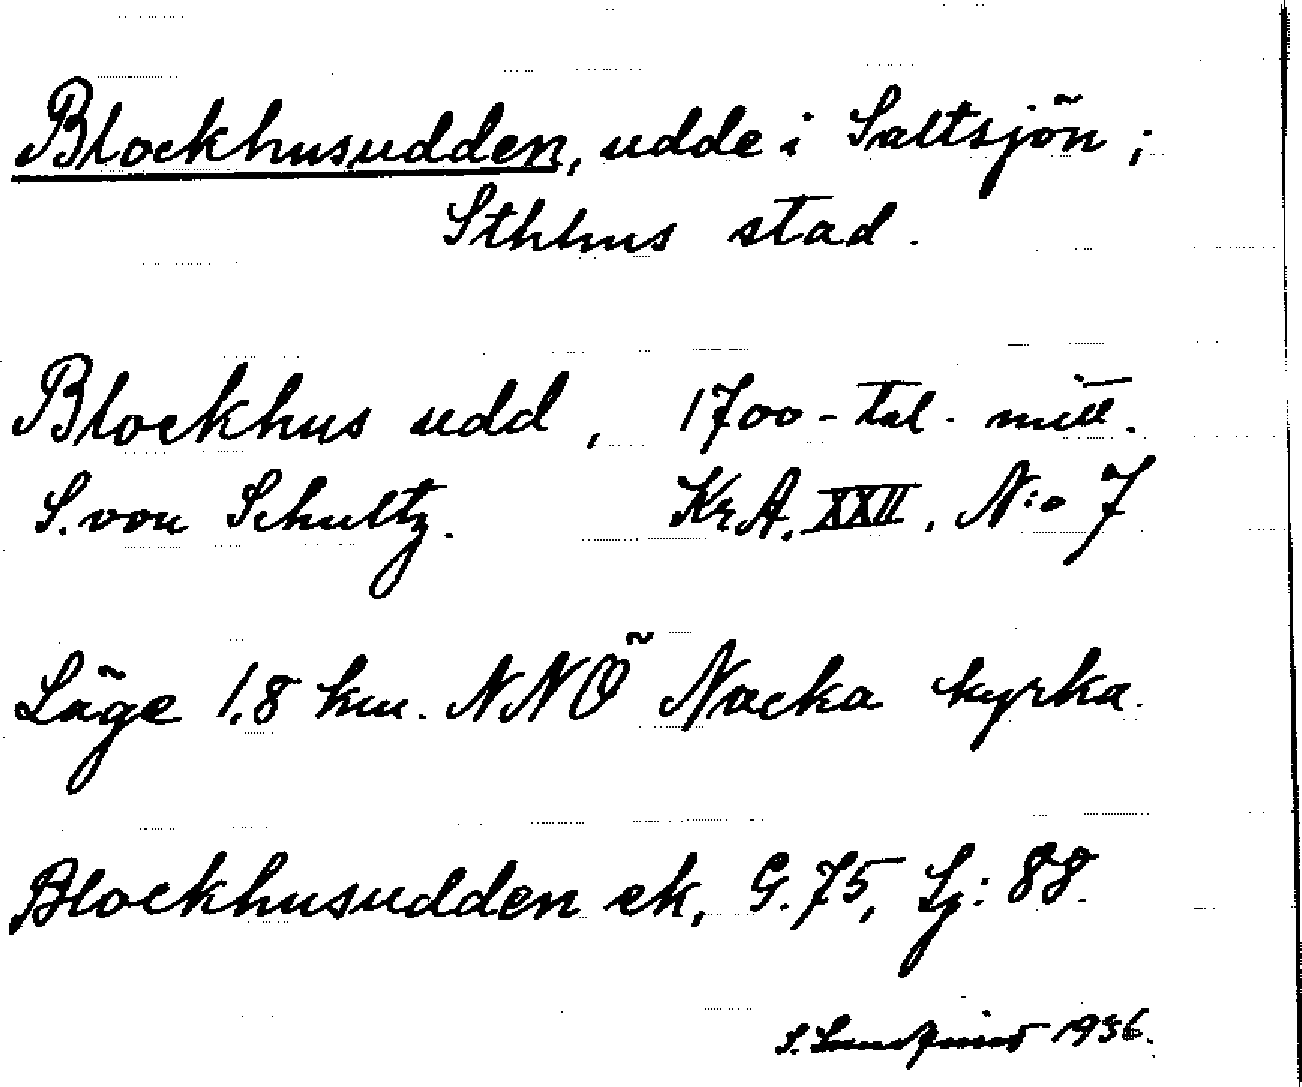 Blockhusudden, udde i Saltsjön;
Sthlms stad.
Blockhus udd, 1700-tal. mitt.
S. von Schultz. KrA. XXII. N:o 7
Läge 1,8 km. NNÖ Nacka kyrka.
Blockhusudden ek, G. 75, Lj: 88.
S. Lundqvist 1936.